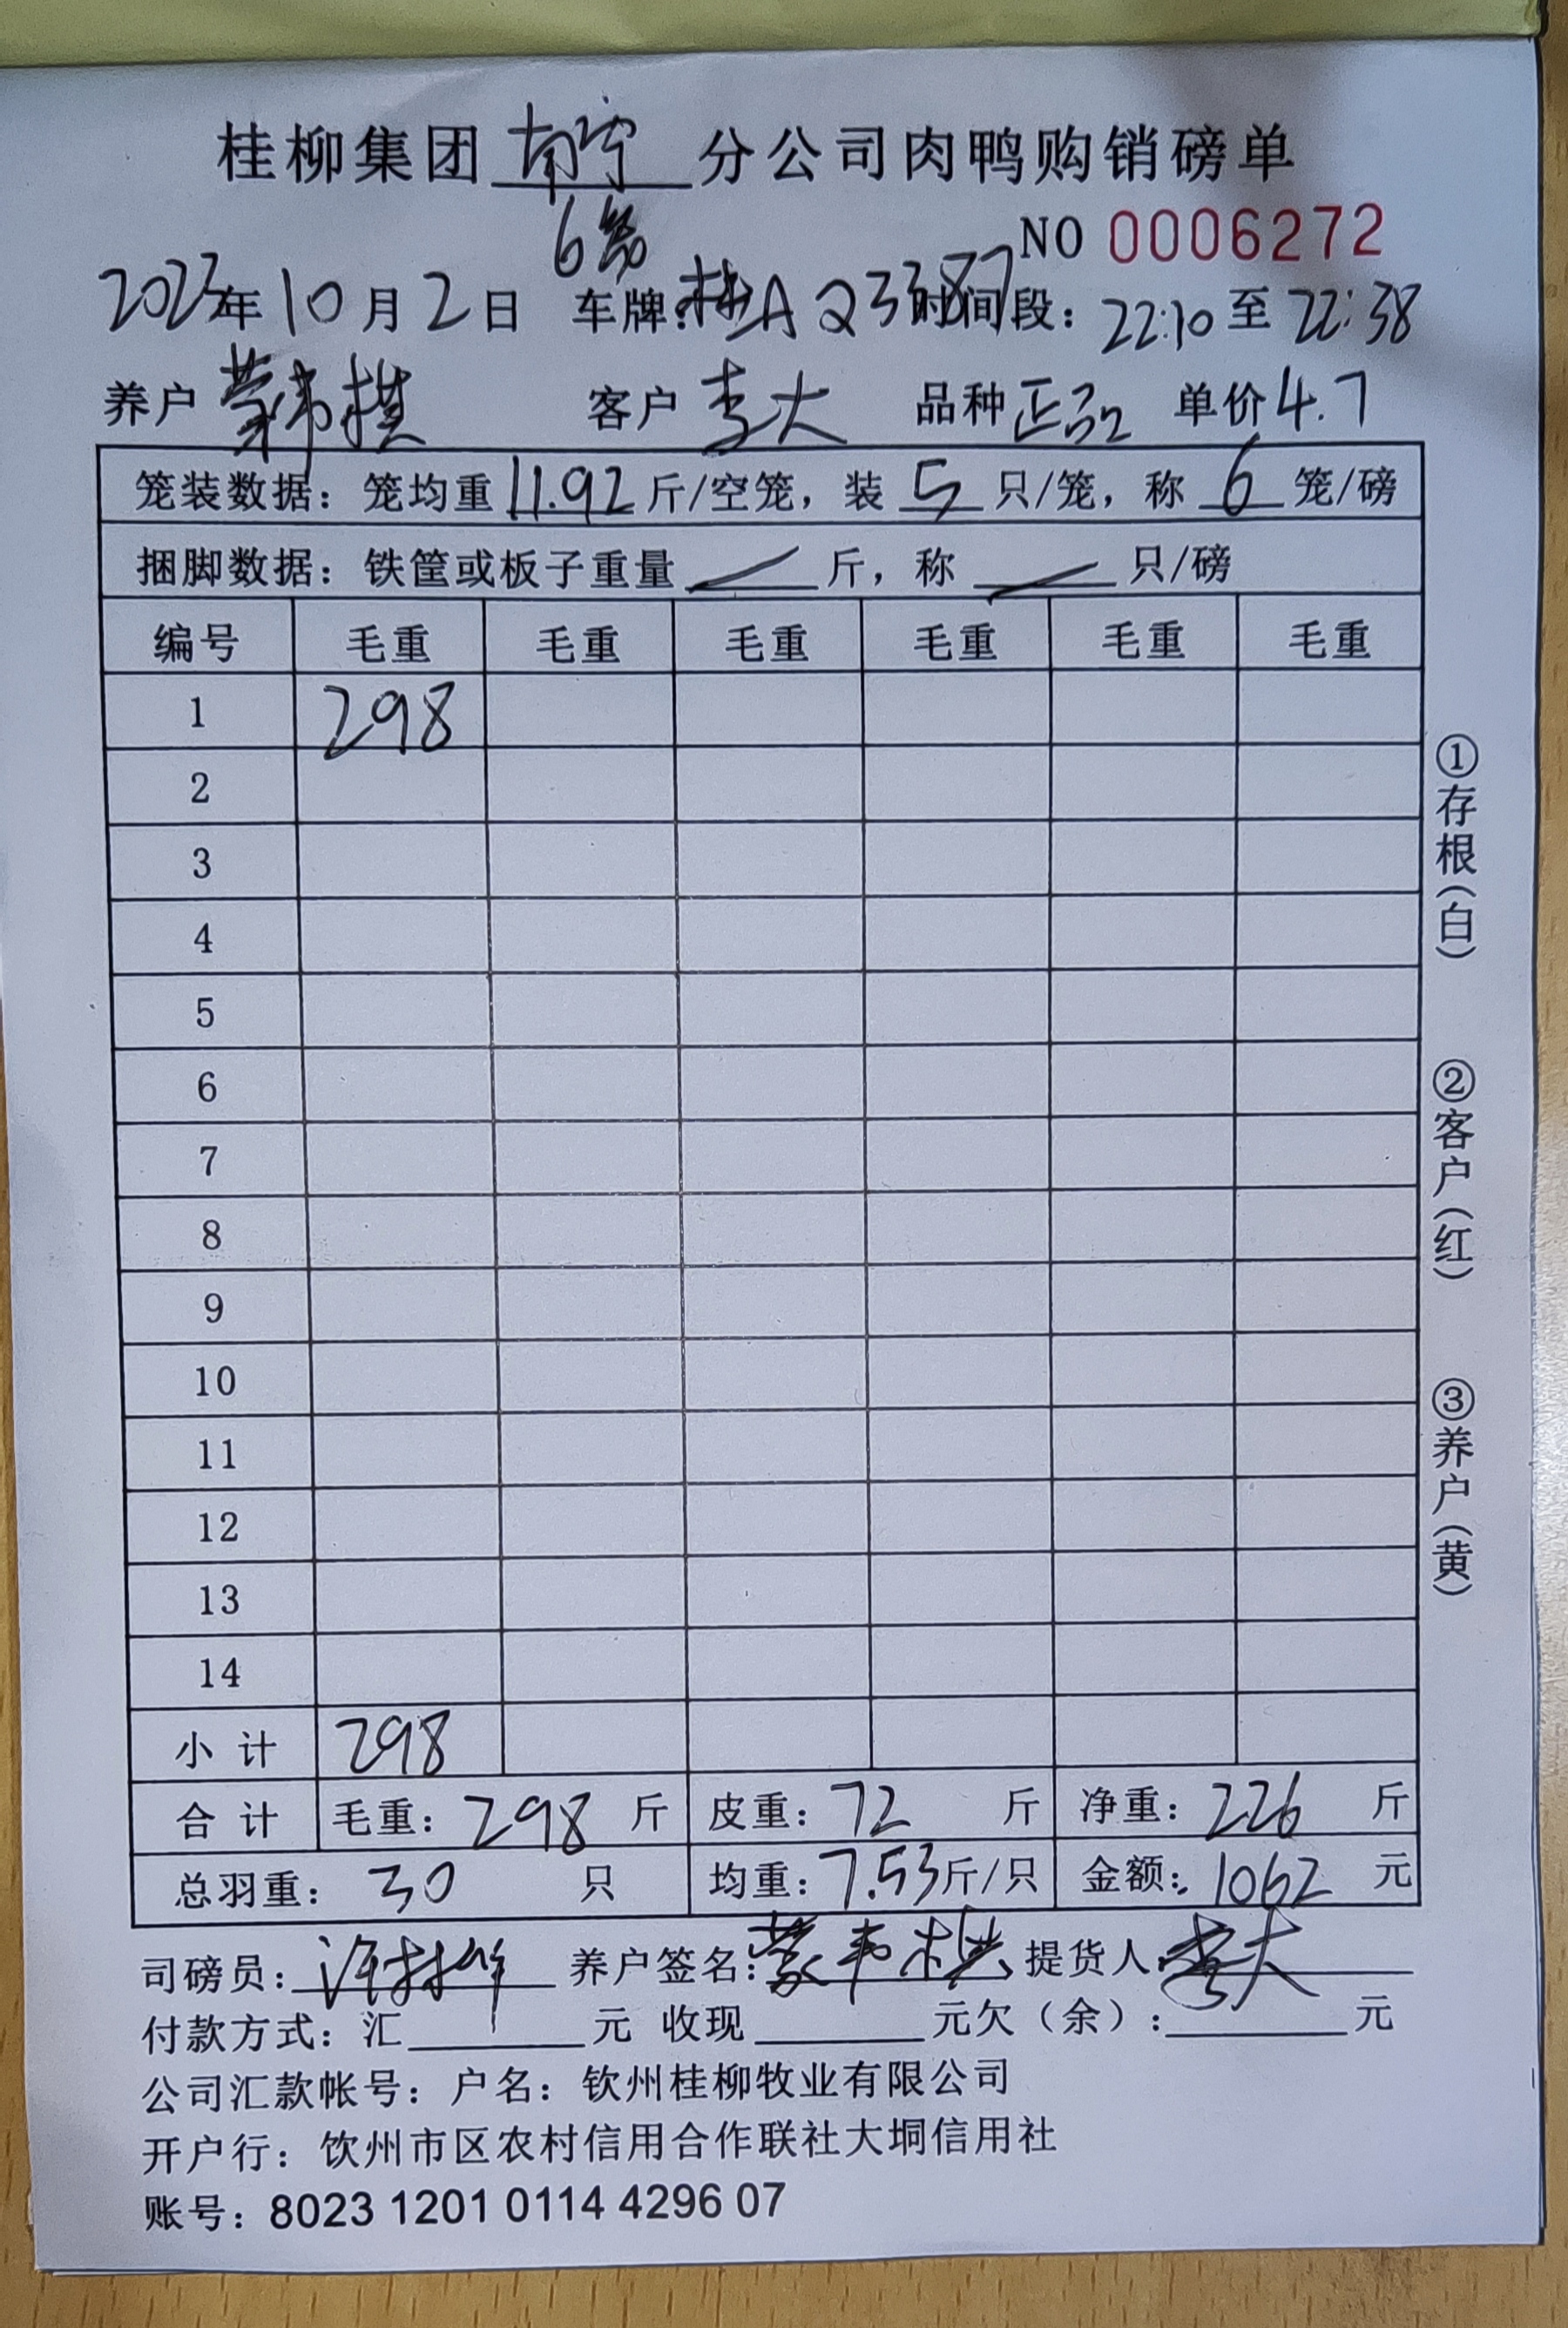 桂柳集团南宁分公司肉鸭购销磅单
6笼
NO 0006272
2023年10月2日 车牌:桂AQ3387 时间段:22:10至22:38
养户 蒙韦棋 客户 李大 品种 正品 单价4.7
笼装数据:笼均重11.92斤/空笼,装5只/笼,称6笼/磅
捆脚数据:铁筐或板子重量 / 斤,称 / 只/磅
编号 毛重 毛重 毛重 毛重 毛重 毛重
1 298
2
3
4
5
6
7
8
9
10
11
12
13
14
小计 298
合计 毛重:298斤 皮重:72斤 净重:226斤
总羽重:30只 均重:7.53斤/只 金额:1062元
司磅员: 养户签名:蒙韦棋 提货人 李大
付款方式:汇 元 收现 元欠(余): 元
公司汇款帐号:户名:钦州桂柳牧业有限公司
开户行:饮州市区农村信用合作联社大垌信用社
账号:8023 1201 0114 4296 07
①存根(白)
②客户(红)
③养户(黄)